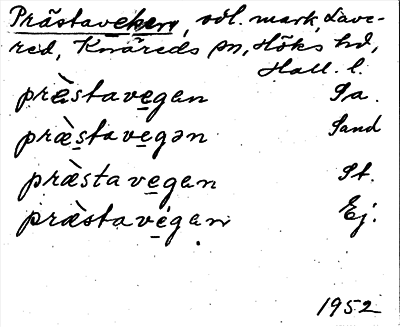 Prästaveken, vål. mark, Lave-
red, Knäreds sn, Höks hd,
Hall. l.
præ̀stavegan Sa.
præ̀stavegən Sand
præ̀stavegan St.
præ̀stavegan Ej.
1952